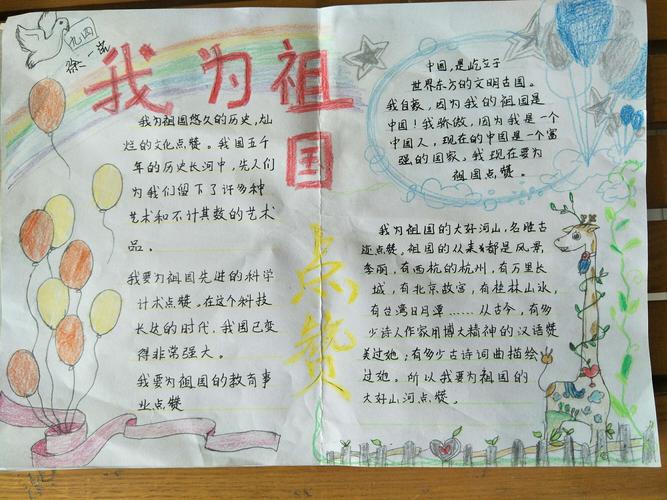 九四
徐一
我为祖国
点赞
我为祖国悠久的历史,灿
烂的文化点赞。我国五千
年的历史长河中,先人们
为我们留下了许多种
艺术和不计其数的艺术
品。
我要为祖国先进的科学
计术点赞。在这个科技
长达的时代,我国已变
得非常强大。
我要为祖国的教育事
业点赞
中国,是屹立于
世界东方的文明古国。
我自豪,因为我的祖国是
中国!我骄傲,因为我是一个
中国人,现在的中国是一个富
强的国家。我现在要为
祖国点赞。
我为祖国的大好河山,名胜古
迹点赞。祖国的从来都是风景
季丽,有西杭的杭州,有万里长
城,有北京故宫,有桂林山水,
有台湾日月潭……从古今,有多
少诗人作家用博大精神的汉语赞
美过她;有多少古诗词曲描绘
过她。所以我要为祖国的
大好山河点赞。